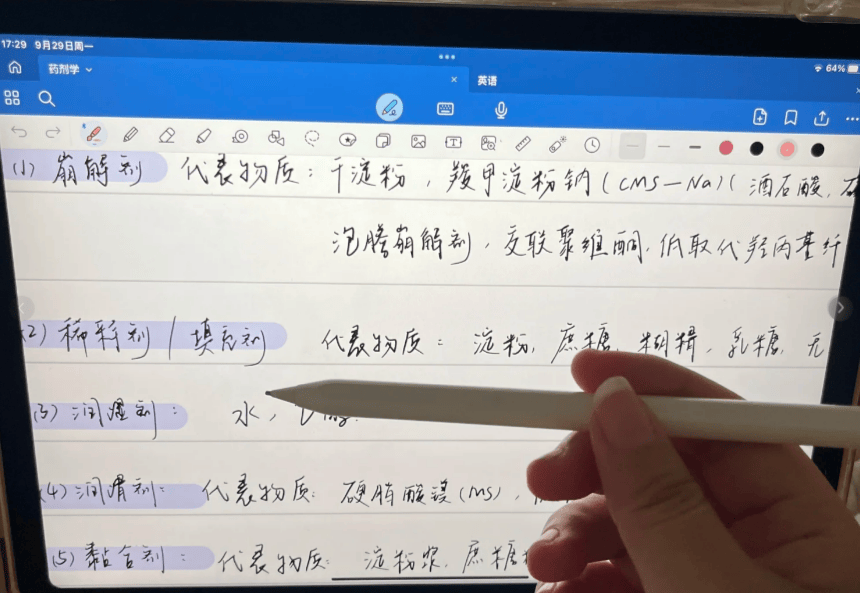 17:29 9月29日周一
64%
药剂学
英语
(1) 崩解剂 代表物质：干淀粉，羧甲淀粉钠(CMS-Na)(酒石酸，
泡腾崩解剂，交联聚维酮，低取代羟丙基纤
(2) 稀释剂/填充剂 代表物质：淀粉，蔗糖，糊精，乳糖，无
(3) 润湿剂： 水，
(4) 润滑剂： 代表物质：硬脂酸镁(MS)，
(5) 黏合剂： 代表物质：淀粉浆，蔗糖